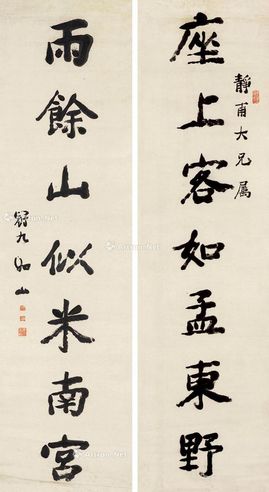 座上客如孟東野
靜甫大兄属
雨餘山似米南宮
如山